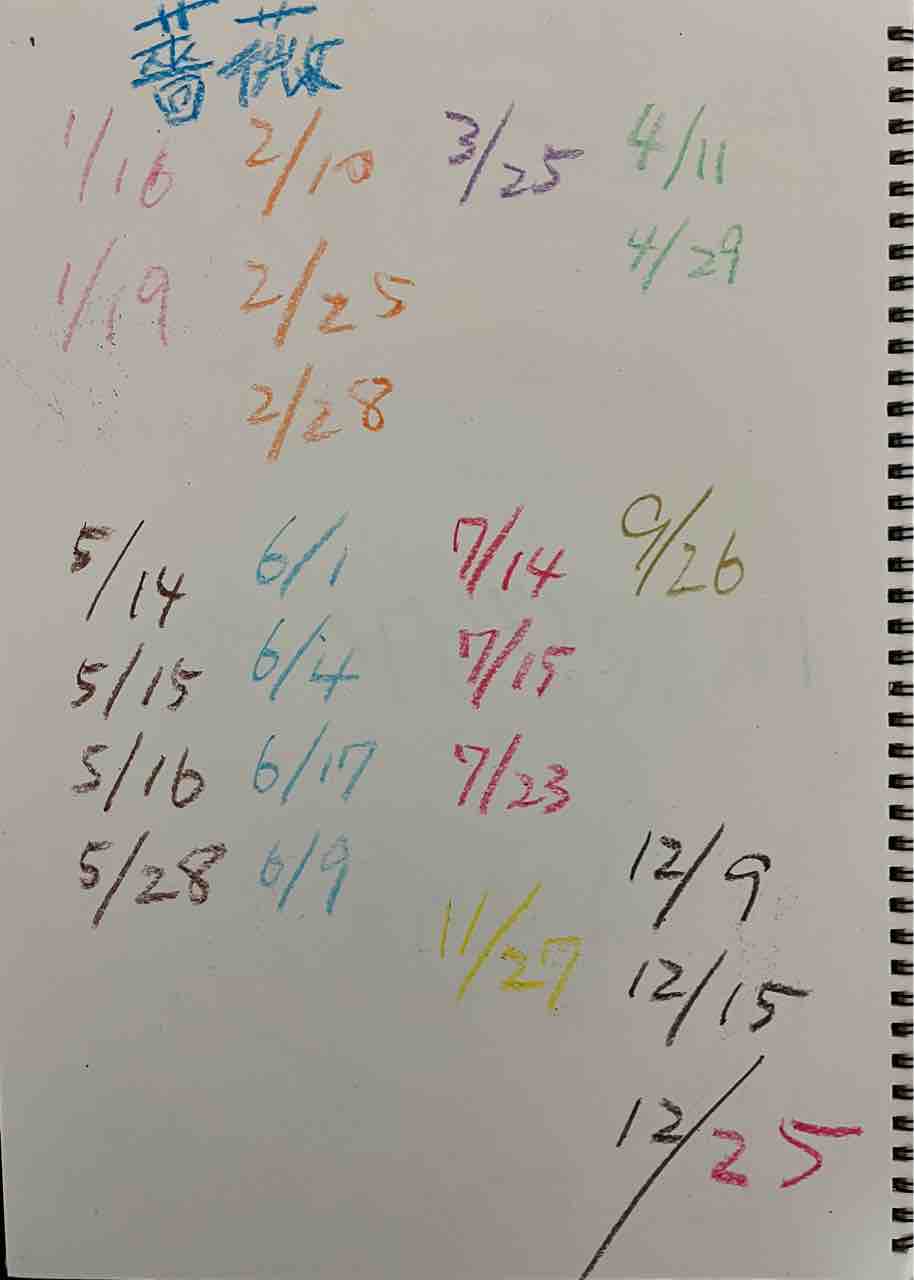 薔薇
1/16 2/10 3/25 4/11
4/29
1/19 2/25
2/28
5/14 6/1 7/14 9/26
5/15 6/4 7/15
5/16 6/17 7/23
5/28 6/9 12/9
11/27 12/15
12/25